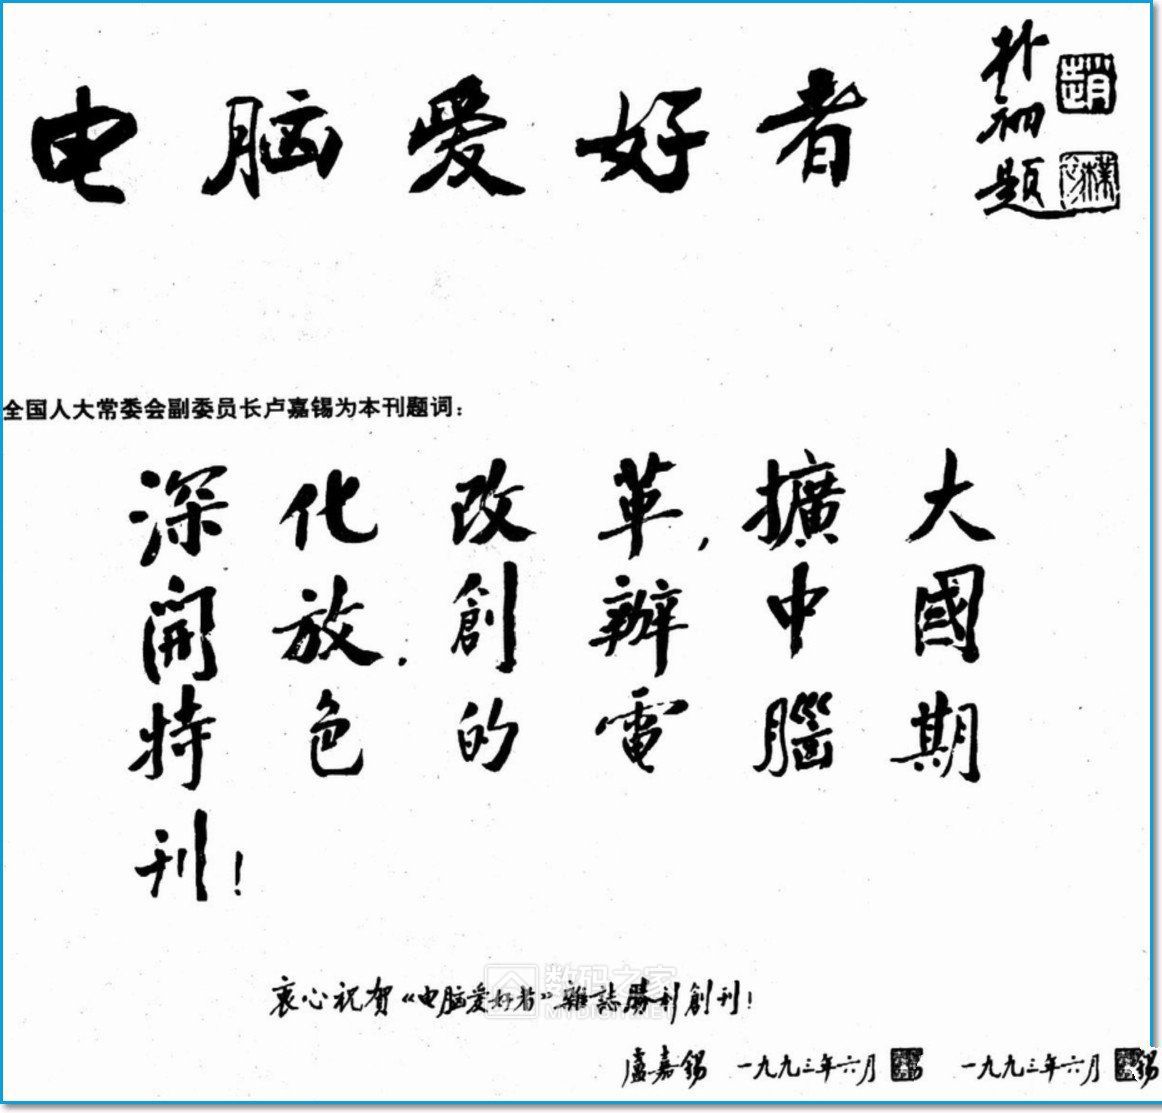 电脑爱好者
朴初题
趙
樸初
全国人大常委会副委员长卢嘉锡为本刊题词：
深化改革，擴大
開放．創辦中國
特色的電腦期
刊！
衷心祝賀《电脑爱好者》雜誌勝利創刊！
数码之家
MYDIGIT.NET
盧嘉錫 一九九三年六月 一九九三年六月 錫